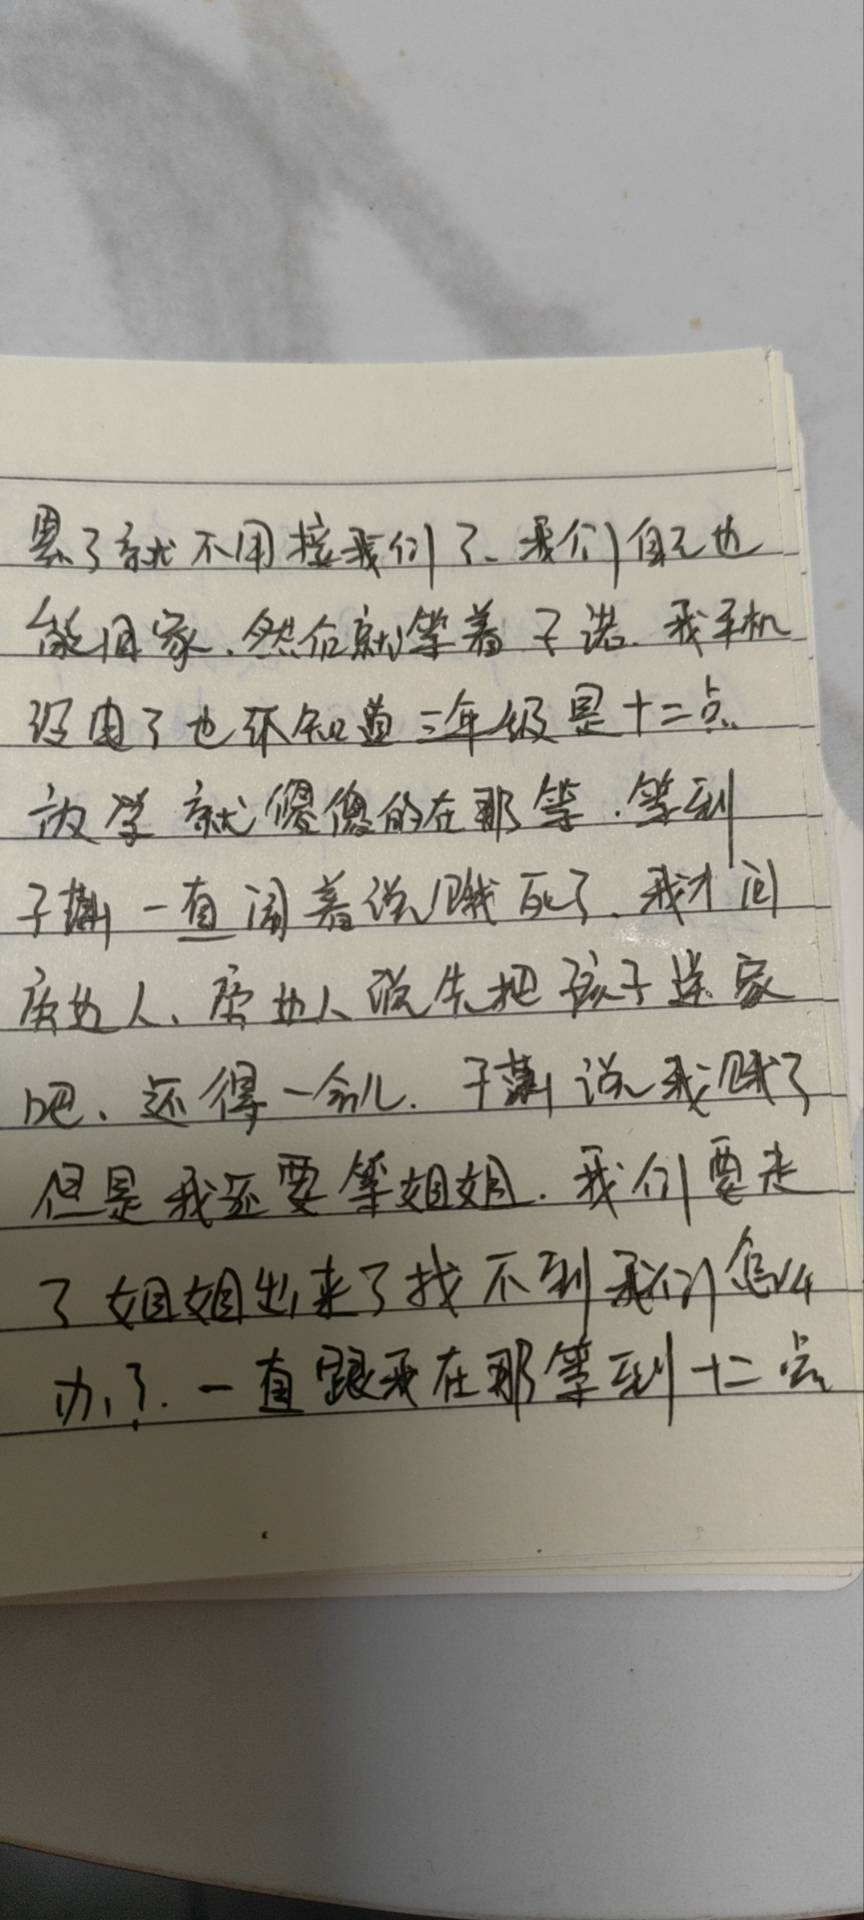 累了就不用接我们了、我们自己也
能回家、然后就等着子诺.我手机
没电了也不知道三年级是十二点
放学就傻傻的在那等.等到
子萧一直闹着说饿死了、我才问
旁边人、旁边人说先把孩子送家
吧、还得一会儿.子萧说我饿了
但是我还要等姐姐.我们要走
了姐姐出来了找不到我们怎么
办了.一直跟我在那等到十二点